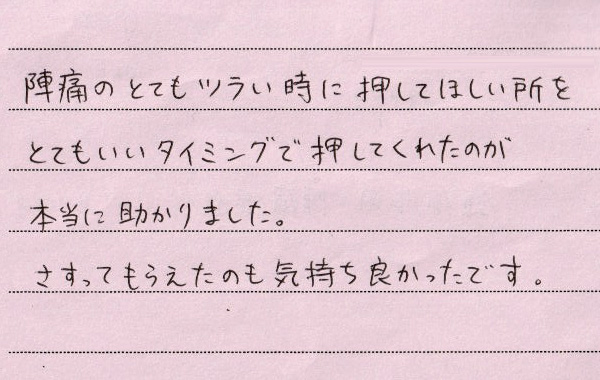 陣痛のとてもツラい時に押してほしい所を
とてもいいタイミングで押してくれたのが
本当に助かりました。
さすってもらえたのも気持ち良かったです。